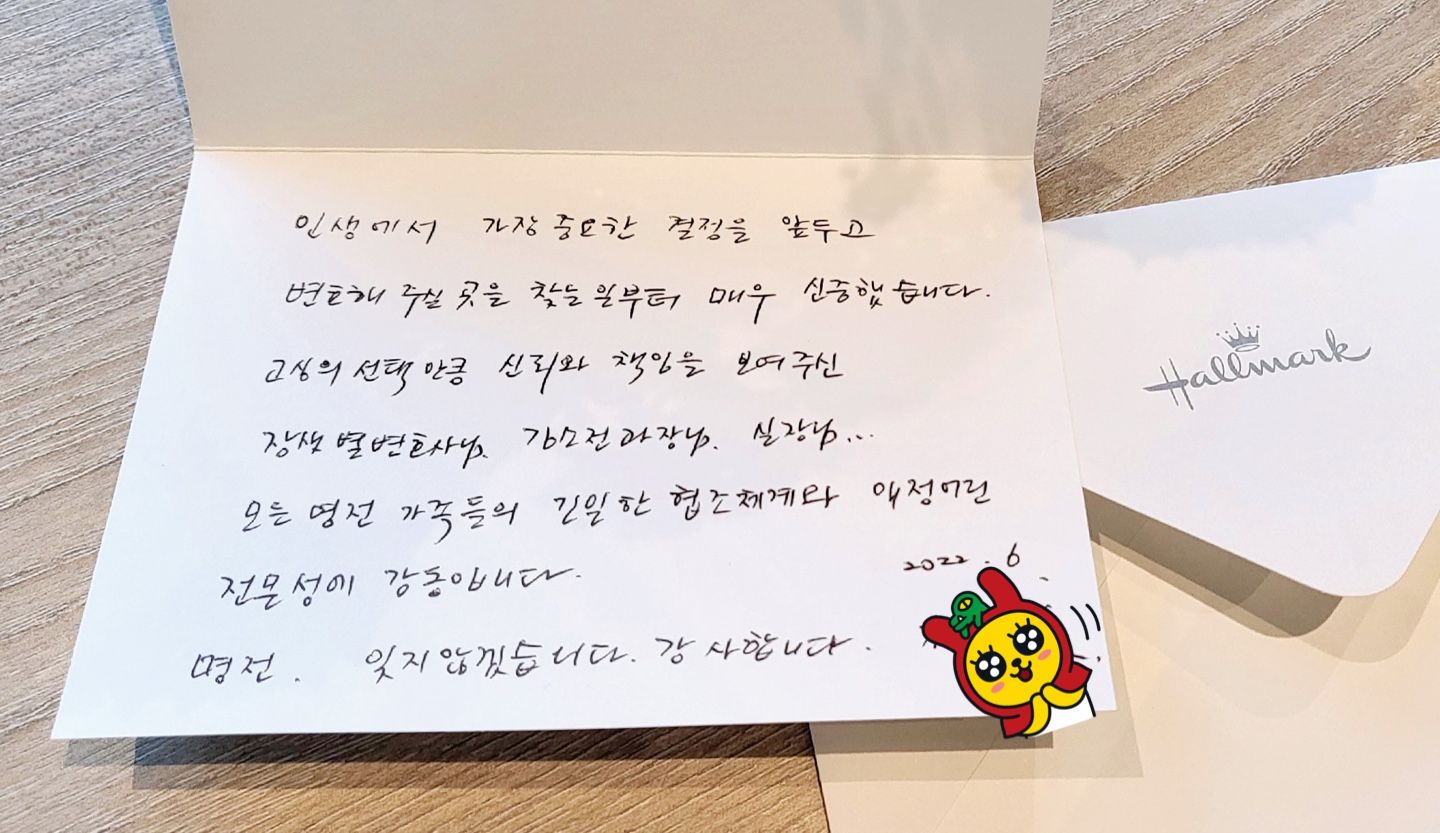 인생에서 가장 중요한 결정을 앞두고
변호해 주실 곳을 찾는 일부터 매우 신중했습니다.
고심의 선택 만큼 신뢰와 책임을 보여주신
장샛별변호사님. 과장님. 실장님...
모든 명전 가족들의 긴밀한 협조체계와 애정어린
전문성에 감동입니다.
2022. 6
명전. 잊지 않겠습니다. 감사합니다.
Hallmark